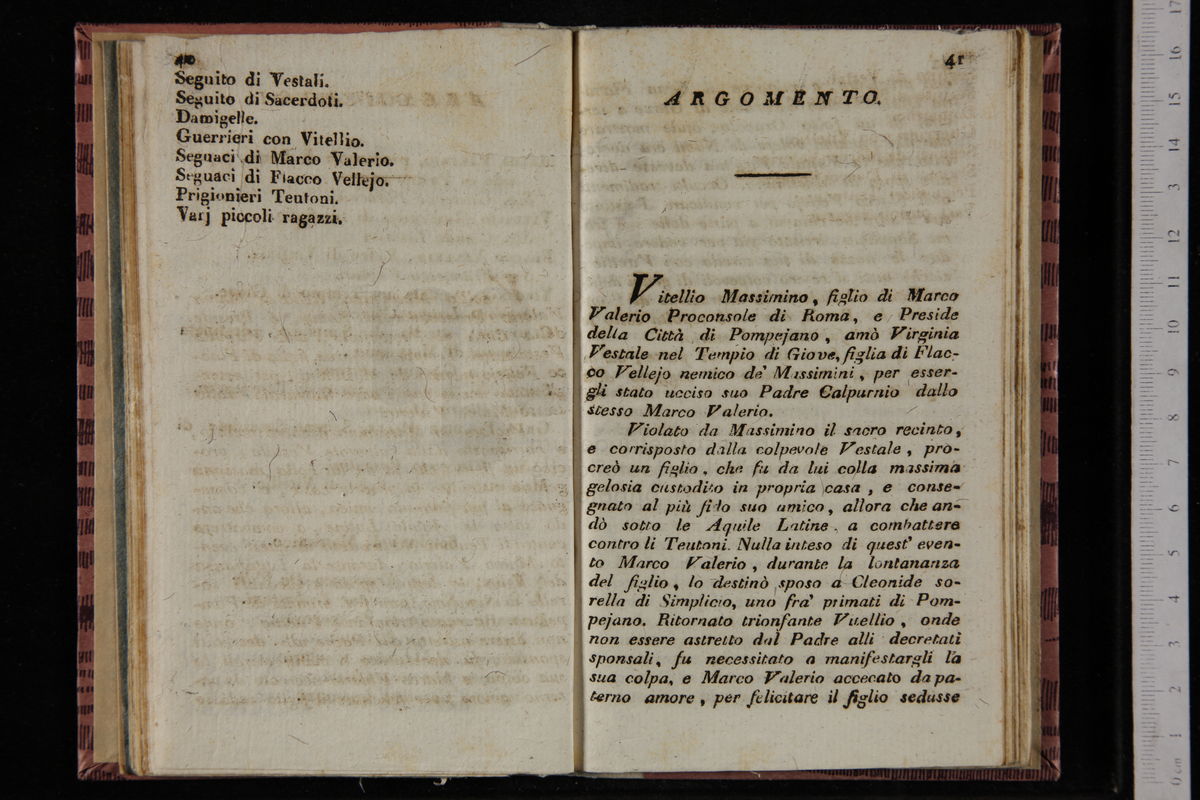 40
Seguito di Vestali.
Seguito di Sacerdoti.
Damigelle.
Guerrieri con Vitellio.
Seguaci di Marco Valerio.
Seguaci di Flacco Vellejo.
Prigionieri Teutoni.
Varj piccoli ragazzi.
41
ARGOMENTO.
Vitellio Massimino, figlio di Marco
Valerio Proconsole di Roma, e Preside
della Città di Pompejano, amò Virginia
Vestale nel Tempio di Giove, figlia di Flac-
co Vellejo nemico de' Massimini, per esser-
gli stato ucciso suo Padre Calpurnio dallo
stesso Marco Valerio.
Violato da Massimino il sacro recinto,
e corrisposto dalla colpevole Vestale, pro-
creò un figlio, che fu da lui colla massima
gelosia custodito in propria casa, e conse-
gnato al più fido suo amico, allora che an-
dò sotto le Aquile Latine a combattere
contro li Teutoni. Nulla inteso di quest' even-
to Marco Valerio, durante la lontananza
del figlio, lo destinò sposo a Cleonide so-
rella di Simplicio, uno fra' primati di Pom-
pejano. Ritornato trionfante Vitellio, onde
non essere astretto dal Padre alli decretati
sponsali, fu necessitato a manifestargli la
sua colpa, e Marco Valerio accecato da pa-
terno amore, per felicitare il figlio sedusse
0 cm
1
2
3
4
5
6
7
8
9
10
11
12
13
14
15
16
17